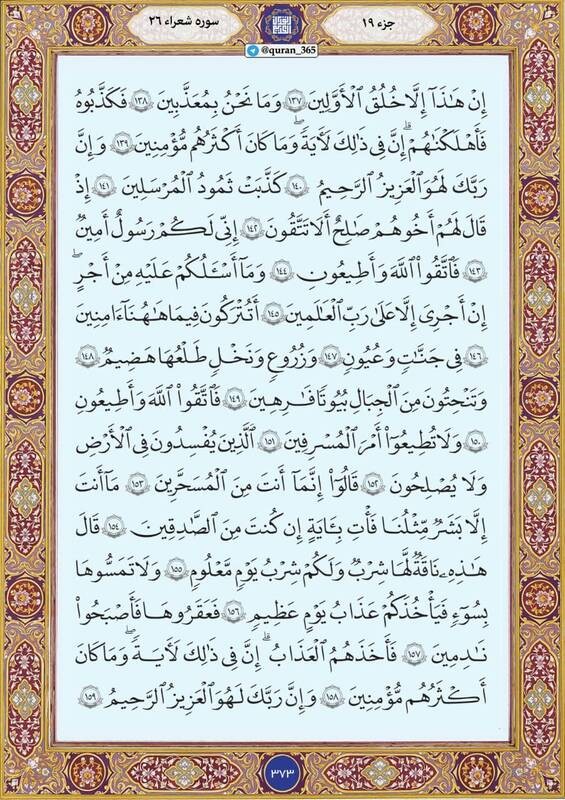 جزء ۱۹
سوره شعراء ۲۶
@quran_365
إِنْ هَٰذَآ إِلَّا خُلُقُ الْأَوَّلِينَ ۝١٣٧ وَمَا نَحْنُ بِمُعَذَّبِينَ ۝١٣٨ فَكَذَّبُوهُ
فَأَهْلَكْنَاهُمْ ۗ إِنَّ فِي ذَٰلِكَ لَآيَةً ۖ وَمَا كَانَ أَكْثَرُهُم مُّؤْمِنِينَ ۝١٣٩ وَإِنَّ
رَبَّكَ لَهُوَ الْعَزِيزُ الرَّحِيمُ ۝١٤٠ كَذَّبَتْ ثَمُودُ الْمُرْسَلِينَ ۝١٤١ إِذْ
قَالَ لَهُمْ أَخُوهُمْ صَالِحٌ أَلَا تَتَّقُونَ ۝١٤٢ إِنِّي لَكُمْ رَسُولٌ أَمِينٌ
۝١٤٣ فَاتَّقُوا۟ اللَّهَ وَأَطِيعُونِ ۝١٤٤ وَمَآ أَسْـَٔلُكُمْ عَلَيْهِ مِنْ أَجْرٍ ۖ
إِنْ أَجْرِيَ إِلَّا عَلَىٰ رَبِّ الْعَالَمِينَ ۝١٤٥ أَتُتْرَكُونَ فِي مَا هَاهُنَآ ءَامِنِينَ
۝١٤٦ فِي جَنَّاتٍ وَعُيُونٍ ۝١٤٧ وَزُرُوعٍ وَنَخْلٍ طَلْعُهَا هَضِيمٌ ۝١٤٨
وَتَنْحِتُونَ مِنَ الْجِبَالِ بُيُوتًا فَارِهِينَ ۝١٤٩ فَاتَّقُوا۟ اللَّهَ وَأَطِيعُونِ
۝١٥٠ وَلَا تُطِيعُوٓا۟ أَمْرَ الْمُسْرِفِينَ ۝١٥١ الَّذِينَ يُفْسِدُونَ فِي الْأَرْضِ
وَلَا يُصْلِحُونَ ۝١٥٢ قَالُوٓا۟ إِنَّمَآ أَنتَ مِنَ الْمُسَحَّرِينَ ۝١٥٣ مَآ أَنتَ
إِلَّا بَشَرٌ مِّثْلُنَا فَأْتِ بِـَٔايَةٍ إِن كُنتَ مِنَ الصَّادِقِينَ ۝١٥٤ قَالَ
هَٰذِهِۦ نَاقَةٌ لَّهَا شِرْبٌ وَلَكُمْ شِرْبُ يَوْمٍ مَّعْلُومٍ ۝١٥٥ وَلَا تَمَسُّوهَا
بِسُوٓءٍ فَيَأْخُذَكُمْ عَذَابُ يَوْمٍ عَظِيمٍ ۝١٥٦ فَعَقَرُوهَا فَأَصْبَحُوا۟
نَادِمِينَ ۝١٥٧ فَأَخَذَهُمُ الْعَذَابُ ۗ إِنَّ فِي ذَٰلِكَ لَآيَةً ۖ وَمَا كَانَ
أَكْثَرُهُم مُّؤْمِنِينَ ۝١٥٨ وَإِنَّ رَبَّكَ لَهُوَ الْعَزِيزُ الرَّحِيمُ ۝١٥٩
۳۷۳